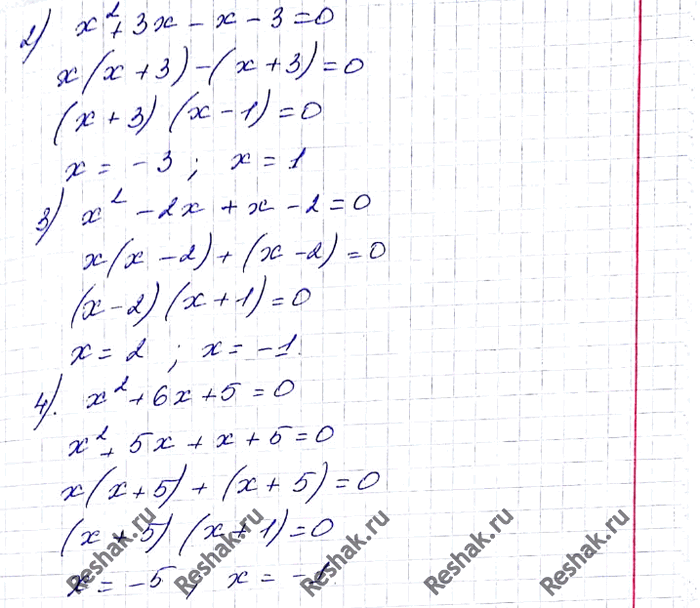 2) x² + 3x - x - 3 = 0
x(x + 3) - (x + 3) = 0
(x + 3) (x - 1) = 0
x = -3 ; x = 1
3) x² - 2x + x - 2 = 0
x(x - 2) + (x - 2) = 0
(x - 2) (x + 1) = 0
x = 2 ; x = -1.
4). x² + 6x + 5 = 0
x² + 5x + x + 5 = 0
x(x + 5) + (x + 5) = 0
(x + 5) (x + 1) = 0
x = -5 ; x = -1
Reshak.ru Reshak.ru Reshak.ru Reshak.ru Reshak.ru